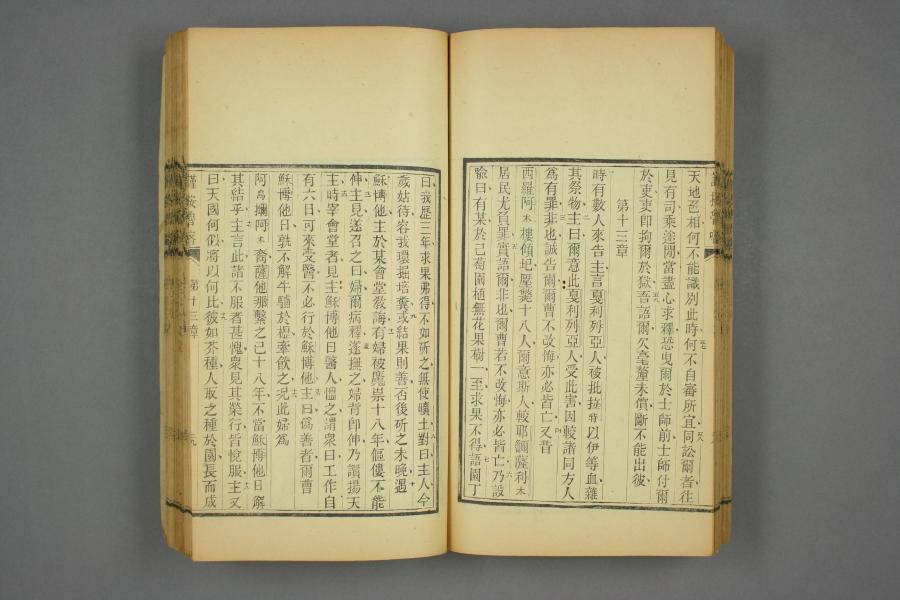 天地色相何不能識別此時何不自審所宜同訟爾者往
見有司乘途間當盡心求釋恐曳爾於士師前士師付爾
於吏吏即拘爾於獄吾語爾欠毫釐未償斷不能出彼
第十三章
時有數人來告主言戛利列亞人被批拉特以伊等血雜
其祭物主曰爾意此戛利列亞人受此害因較諸同方人
為有罪非也誠告爾爾曹不改悔亦必皆亡又昔
西羅阿木樓傾圮壓斃十八人爾意斯人較耶爾薩利木
居民尤負罪實語爾非也爾曹若不改悔亦必皆亡乃設
驗曰有某於己萄園植無花果樹一至求果不得語園丁
曰我歷三年求果弗得不如斫之無使曠土對曰主人今
歲姑待容我環掘培糞或結果則善否後斫之未晚遇
穌博他主於某會堂教誨有婦被魔祟十八年傴僂不能
伸主見遂召之曰婦爾病釋遂撫之婦背即伸乃讚揚天
主時宰會堂者見主穌博他日醫人慍之謂衆曰工作自
有六日可來受醫不必行於穌博他主曰偽善者爾曹
穌博他日孰不解牛驢於櫪牽飲之况此婦為
阿烏爛阿木裔薩他那繫之已十八年不當穌博他日解
其結乎主言此諸不服者甚愧衆見其榮行皆悅服主又
曰天國何似將以何比彼如芥種人取之種於園長而成
第十三章